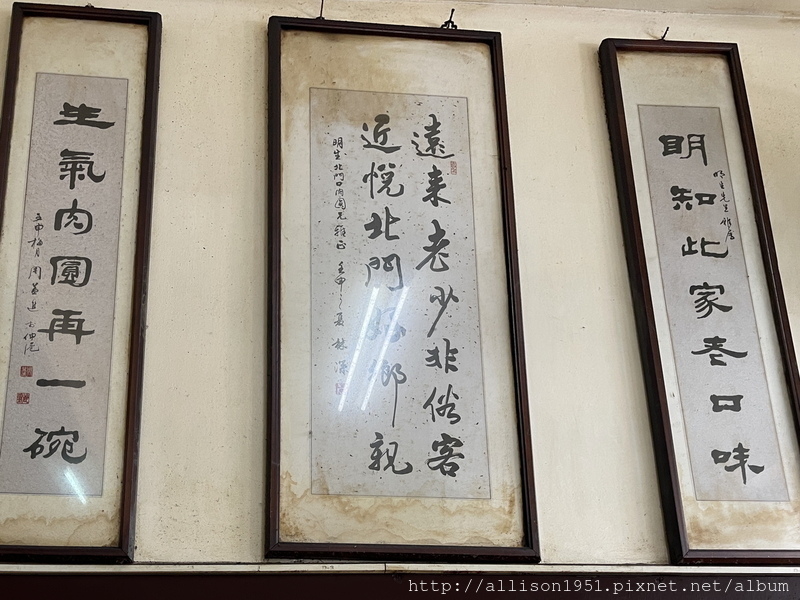 明知此家老口味
明生先生雅屬
遠來老少非俗客
近悅北門好鄉親
明生北門口肉圓兄雅正 壬申之夏 林深
生氣肉圓再一碗
壬申梅月 周
http://allison1951.pixnet.net/album